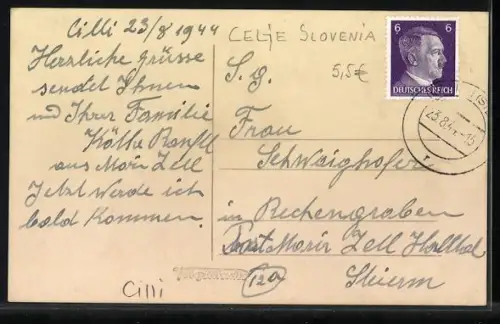 Cilli 23/8 1944
Herzliche Grüsse
sendet Ihnen
und Ihrer Familie
Käthe
aus Maria Zell
Jetzt werde ich
bald kommen.
CELJE SLOVENIA
5,5€
S. g.
Frau
Schwaighofer
in Rechengraben
Post Maria Zell
Steierm
12a
Cilli
6 6
DEUTSCHES REICH
23.8.44-15
r